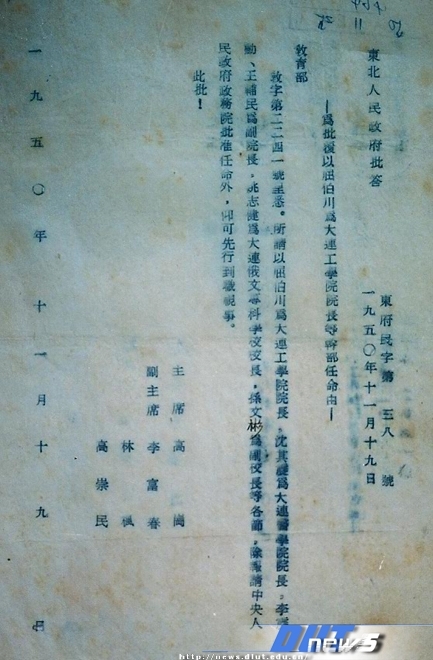 東北人民政府批答
東府民字第三八號
一九五〇年十一月十九日
—為批復以屈伯川為大連工學院院長等幹部任命由—
敎育部
敎字第二二四一號呈悉。所請以屈伯川為大連工學院院長,沈其震為大連醫學院院長,李
勛、王補民為副院長,姚志健為大連俄文專科學校校長,孫文彬為副校長等各節,除報請中央人
民政府政務院批准任命外,卽可先行到職視事。
此批!
主席 高崗
副主席 李富春
林楓
高崇民
一九五〇年十一月十九日
DLUT news
http://news.dlut.edu.cn/